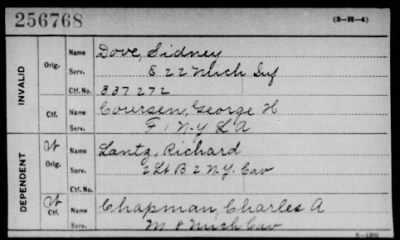 256768
(3-H-4)
INVALID
Orig.
Name Dove, Sidney
Serv. E 22 Mich Inf
Ctf. No. 337272
Ctf.
Name Coursen, George H
Serv. F 1 N.Y L A
DEPENDENT
W
Orig.
Name Lantz, Richard
Serv. 2 Lt B 2 N.Y. Cav
Ctf. No.
W
Ctf.
Name Chapman, Charles A
Serv. M 8 Mich Cav